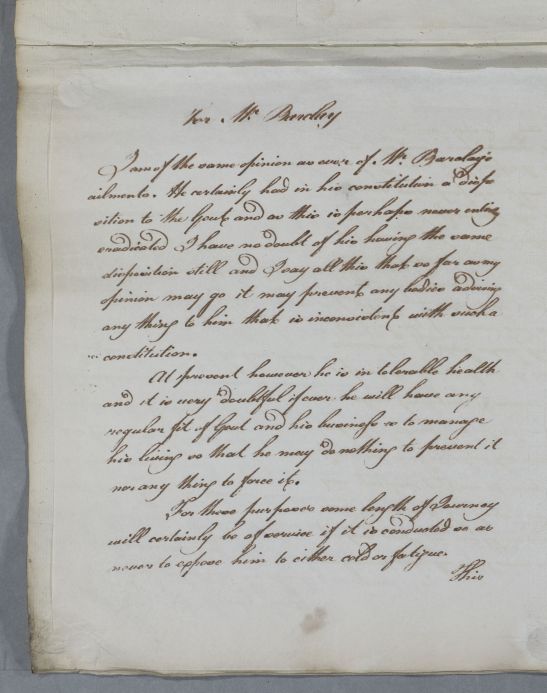 For Mr. Barclay
I am of the same opinion as ever of Mr. Barclay's
ailments. He certainly had in his constitution a dispo
sition to the Gout and as this is perhaps never entirely
eradicated I have no doubt of his having the same
disposition still and I say all this that so far as my
opinion may go it may prevent any bodies advising
any thing to him that is inconsistent with such a
constitution.
At present however he is in tolerable health
and it is very doubtful if ever he will have any
regular fit of Gout and his business is to manage
his living so that he may do nothing to prevent it
nor any thing to force it.
For these purposes some length of Journey
will certainly be of service if it is conducted so as
never to expose him to either cold or fatigue.
This